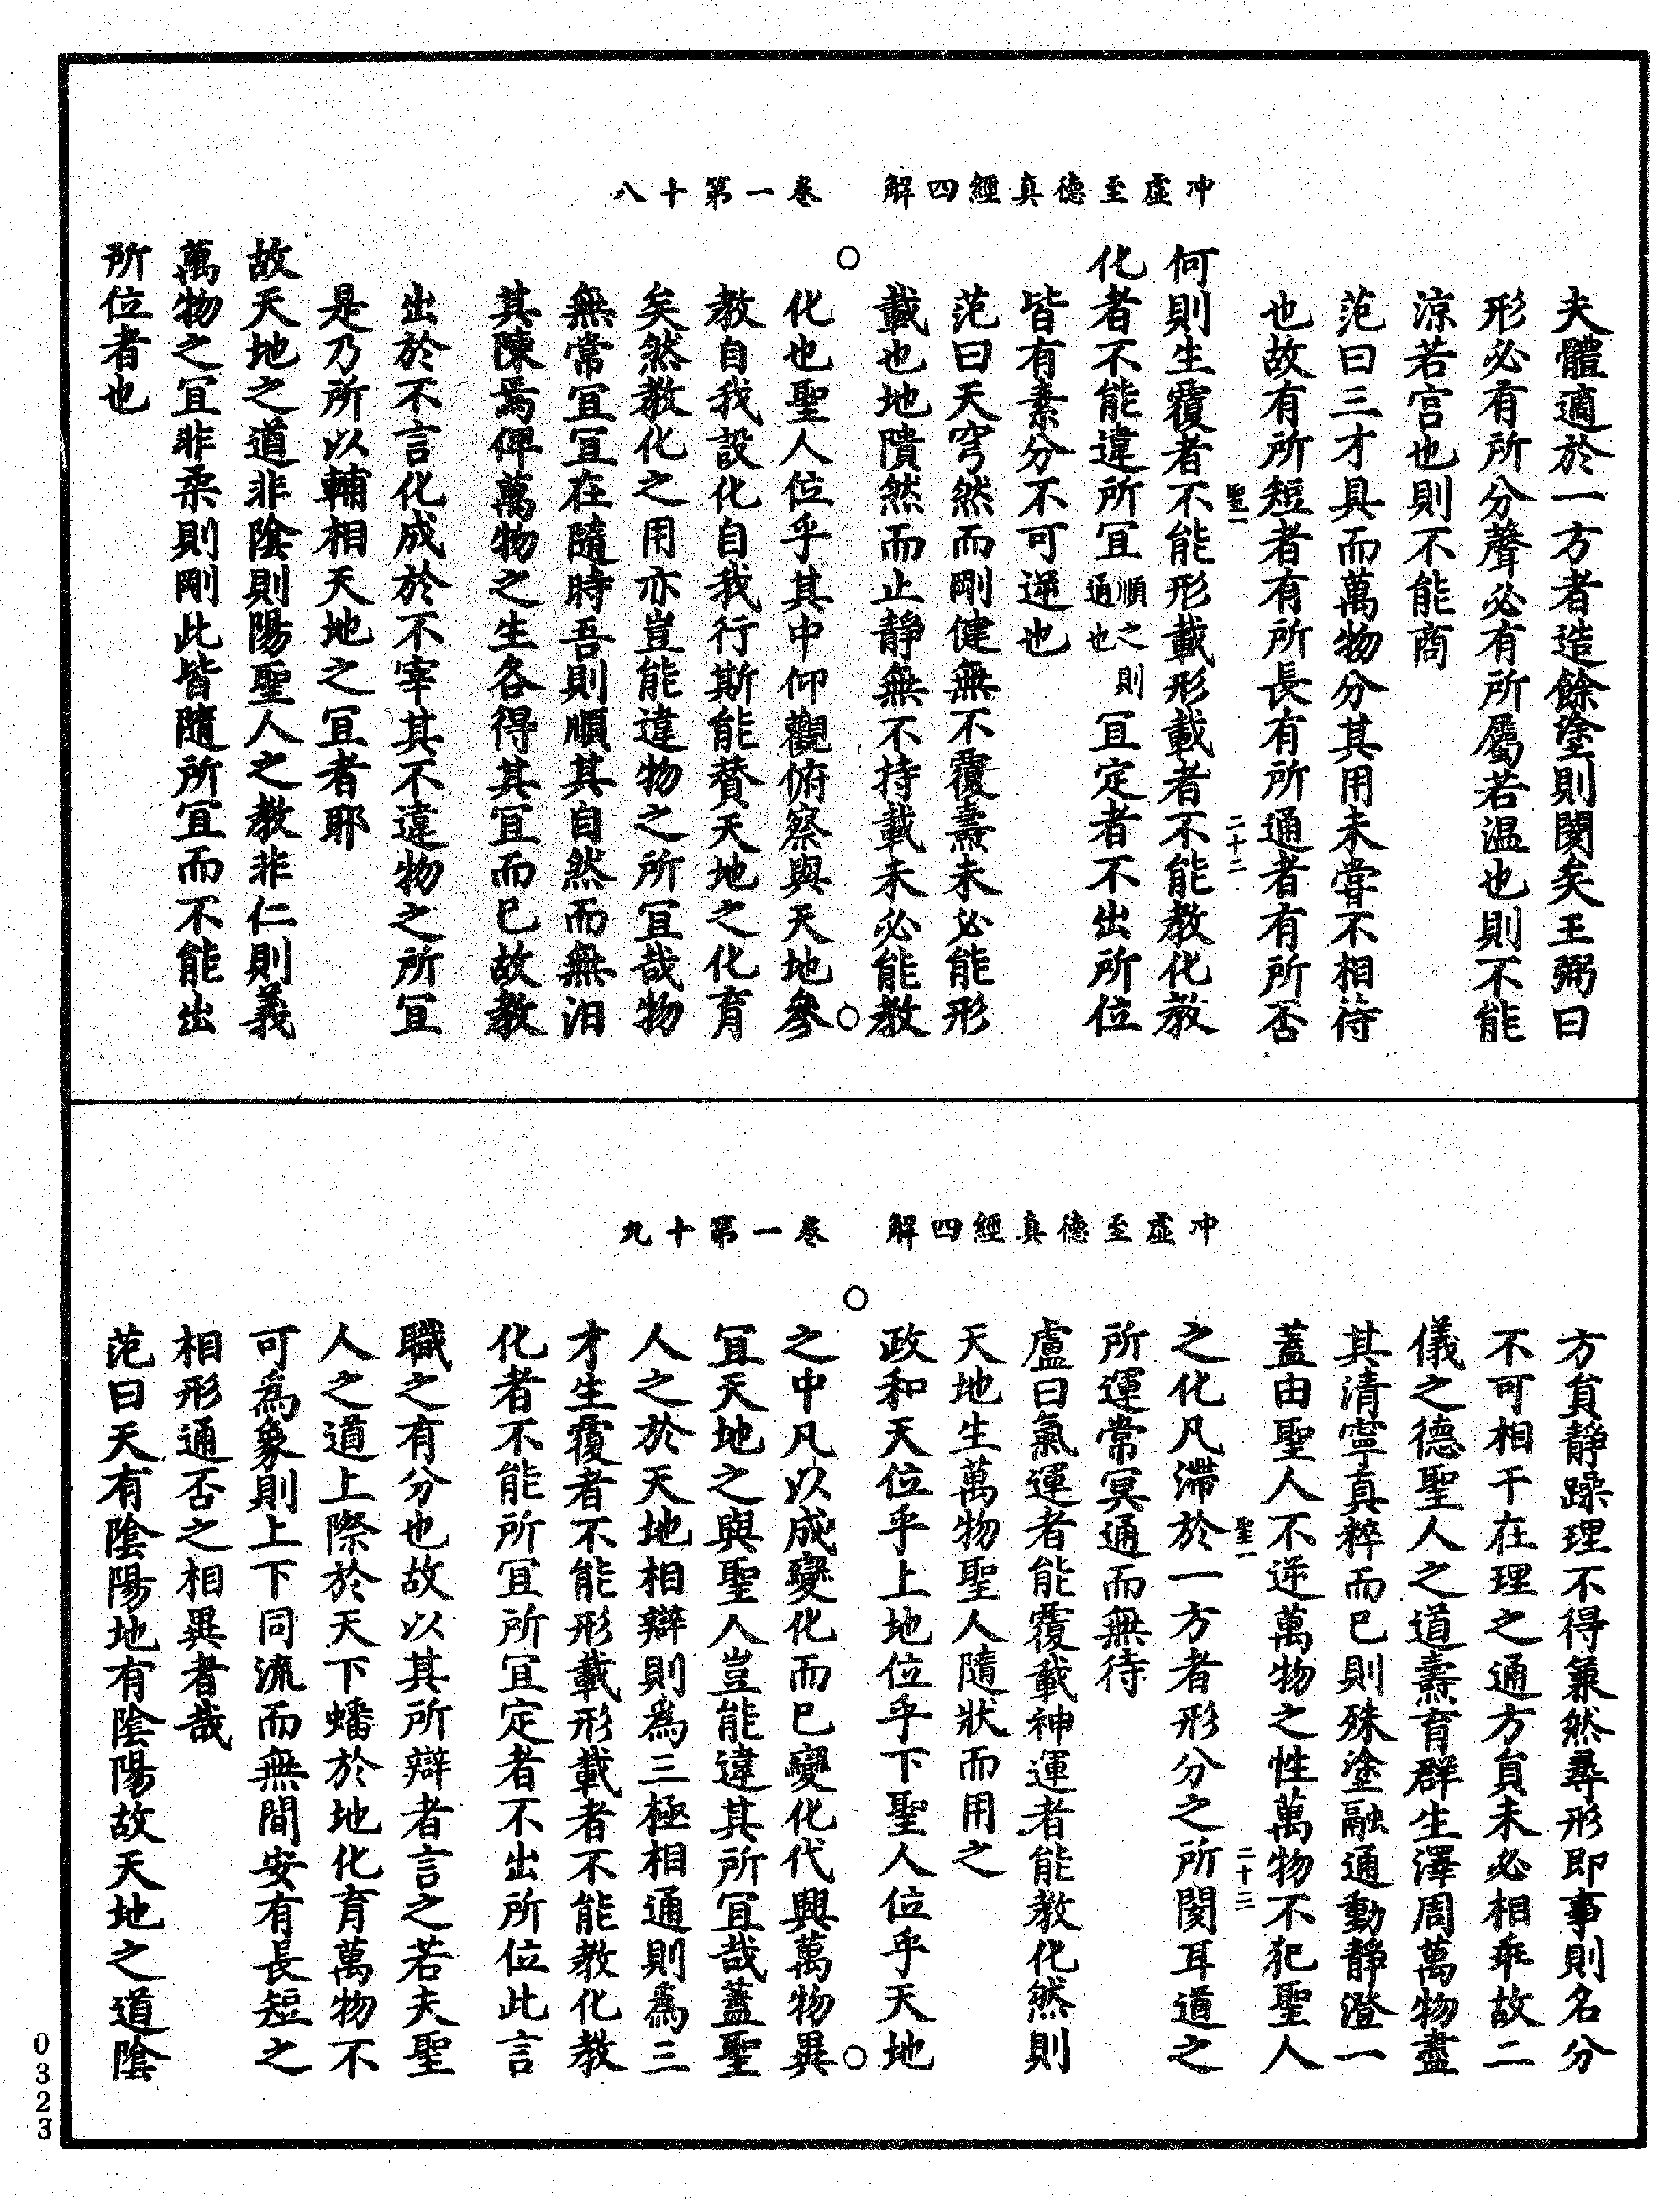 冲虛至德真經四解　卷一第十八
夫體適於一方者造餘塗則閡矣王弼曰
形必有所分聲必有所屬若温也則不能
涼若宫也則不能商
范曰三才具而萬物分其用未嘗不相待
也故有所短者有所長有所通者有所否
聖一　二十二
何則生覆者不能形載形載者不能教化教
化者不能違所宜順之則通也宜定者不出所位
皆有素分不可逆也
范曰天穹然而剛健無不覆燾未必能形
載也地隤然而止靜無不持載未必能教
化也聖人位乎其中仰觀俯察與天地參
教自我設化自我行斯能賛天地之化育
矣然教化之用亦豈能違物之所宜哉物
無常宜宜在隨時吾則順其自然而無汩
其陳焉俾萬物之生各得其宜而已故教
出於不言化成於不宰其不違物之所宜
是乃所以輔相天地之宜者耶
故天地之道非陰則陽聖人之教非仁則義
萬物之宜非柔則剛此皆隨所宜而不能出
所位者也
冲虛至德真經四解　卷一第十九
方負静躁理不得兼然尋形即事則名分
不可相干在理之通方負未必相乖故二
儀之德聖人之道燾育群生澤周萬物盡
其清寧真粹而已則殊塗融通動靜澄一
蓋由聖人不逆萬物之性萬物不犯聖人
聖一　二十三
之化凡滯於一方者形分之所閡耳道之
所運常冥通而無待
盧曰氣運者能覆載神運者能教化然則
天地生萬物聖人隨狀而用之
政和天位乎上地位乎下聖人位乎天地
之中凡以成變化而已變化代興萬物異
宜天地之與聖人豈能違其所宜哉蓋聖
人之於天地相辯則為三極相通則為三
才生覆者不能形載形載者不能教化教
化者不能所宜所宜定者不出所位此言
職之有分也故以其所辯者言之若夫聖
人之道上際於天下蟠於地化育萬物不
可為象則上下同流而無間安有長短之
相形通否之相異者哉
范曰天有陰陽地有陰陽故天地之道陰
0323